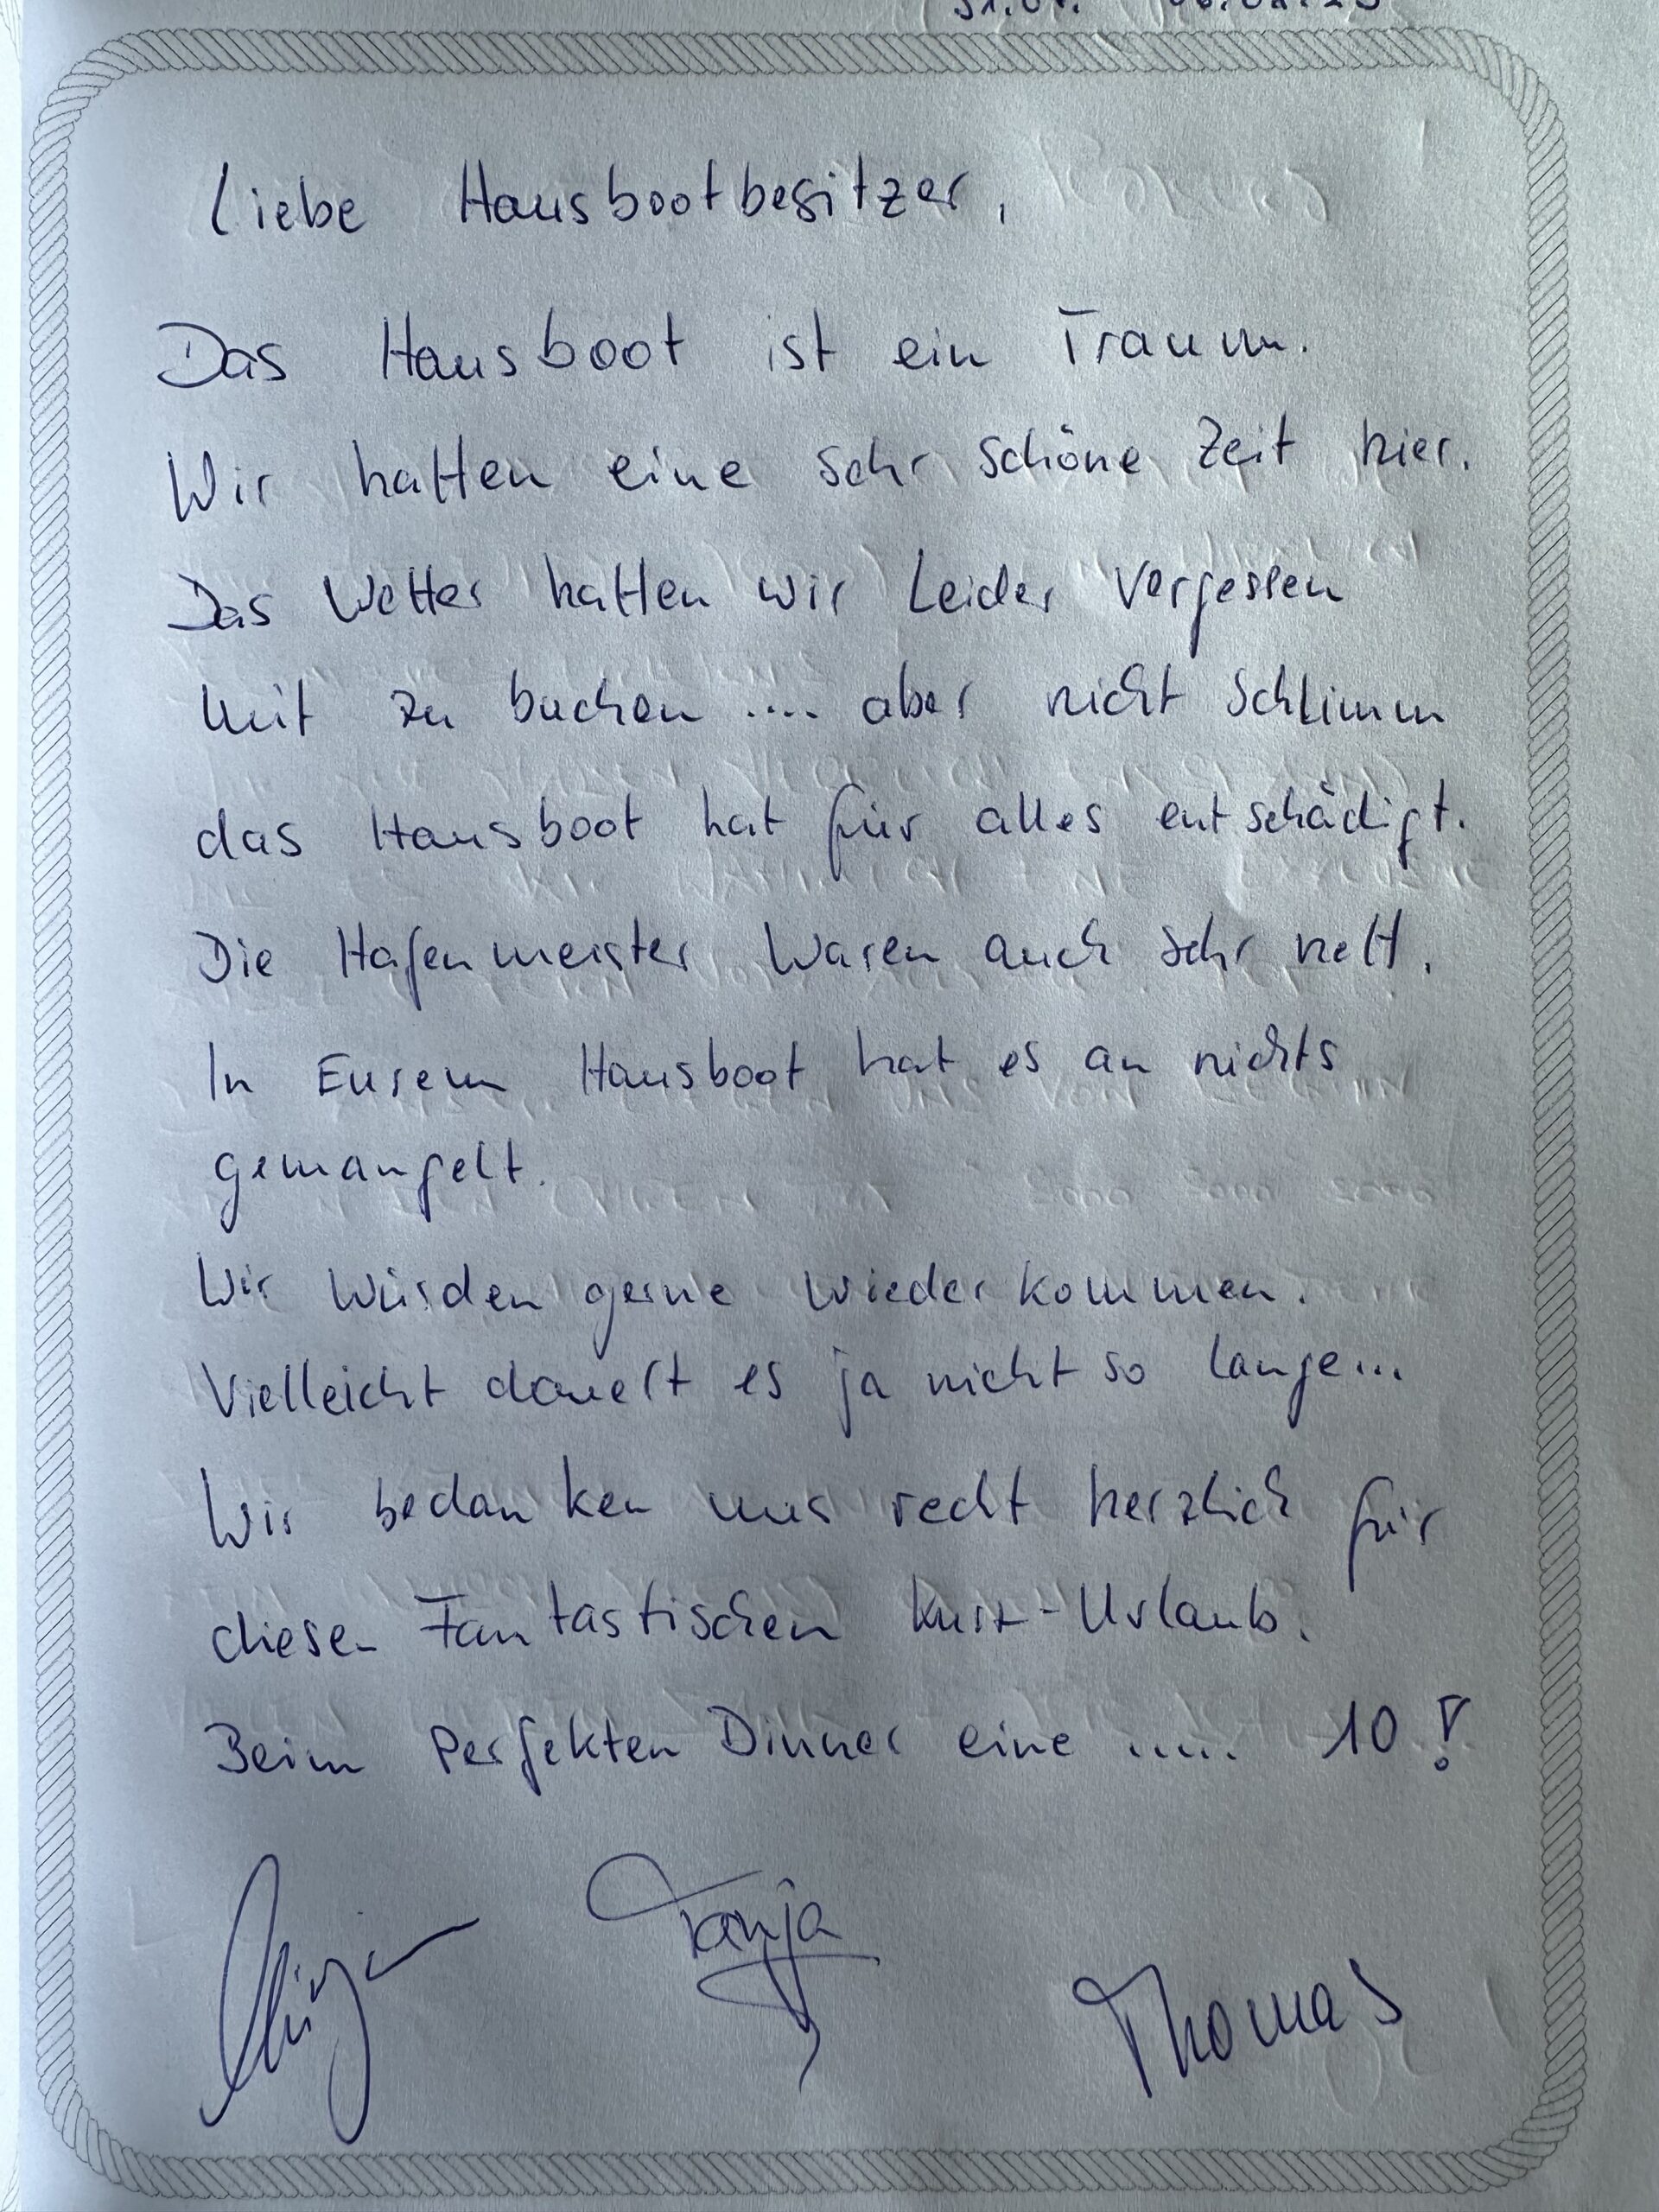 Liebe Hausbootbesitzer,
Das Hausboot ist ein Traum.
Wir hatten eine sehr schöne Zeit hier.
Das Wetter hatten wir Leider Vergessen
mit zu buchen .... aber nicht Schlimm
das Hausboot hat für alles entschädigt.
Die Hafenmeister Waren auch sehr nett.
In Eurem Hausboot hat es an nichts
gemangelt.
Wir Würden gerne Wieder kommen.
Vielleicht dauert es ja nicht so lange...
Wir bedanken uns recht herzlich für
diesen Fantastischen Kurz-Urlaub.
Beim Perfekten Dinner eine ..... 10!
Tanja
Thomas